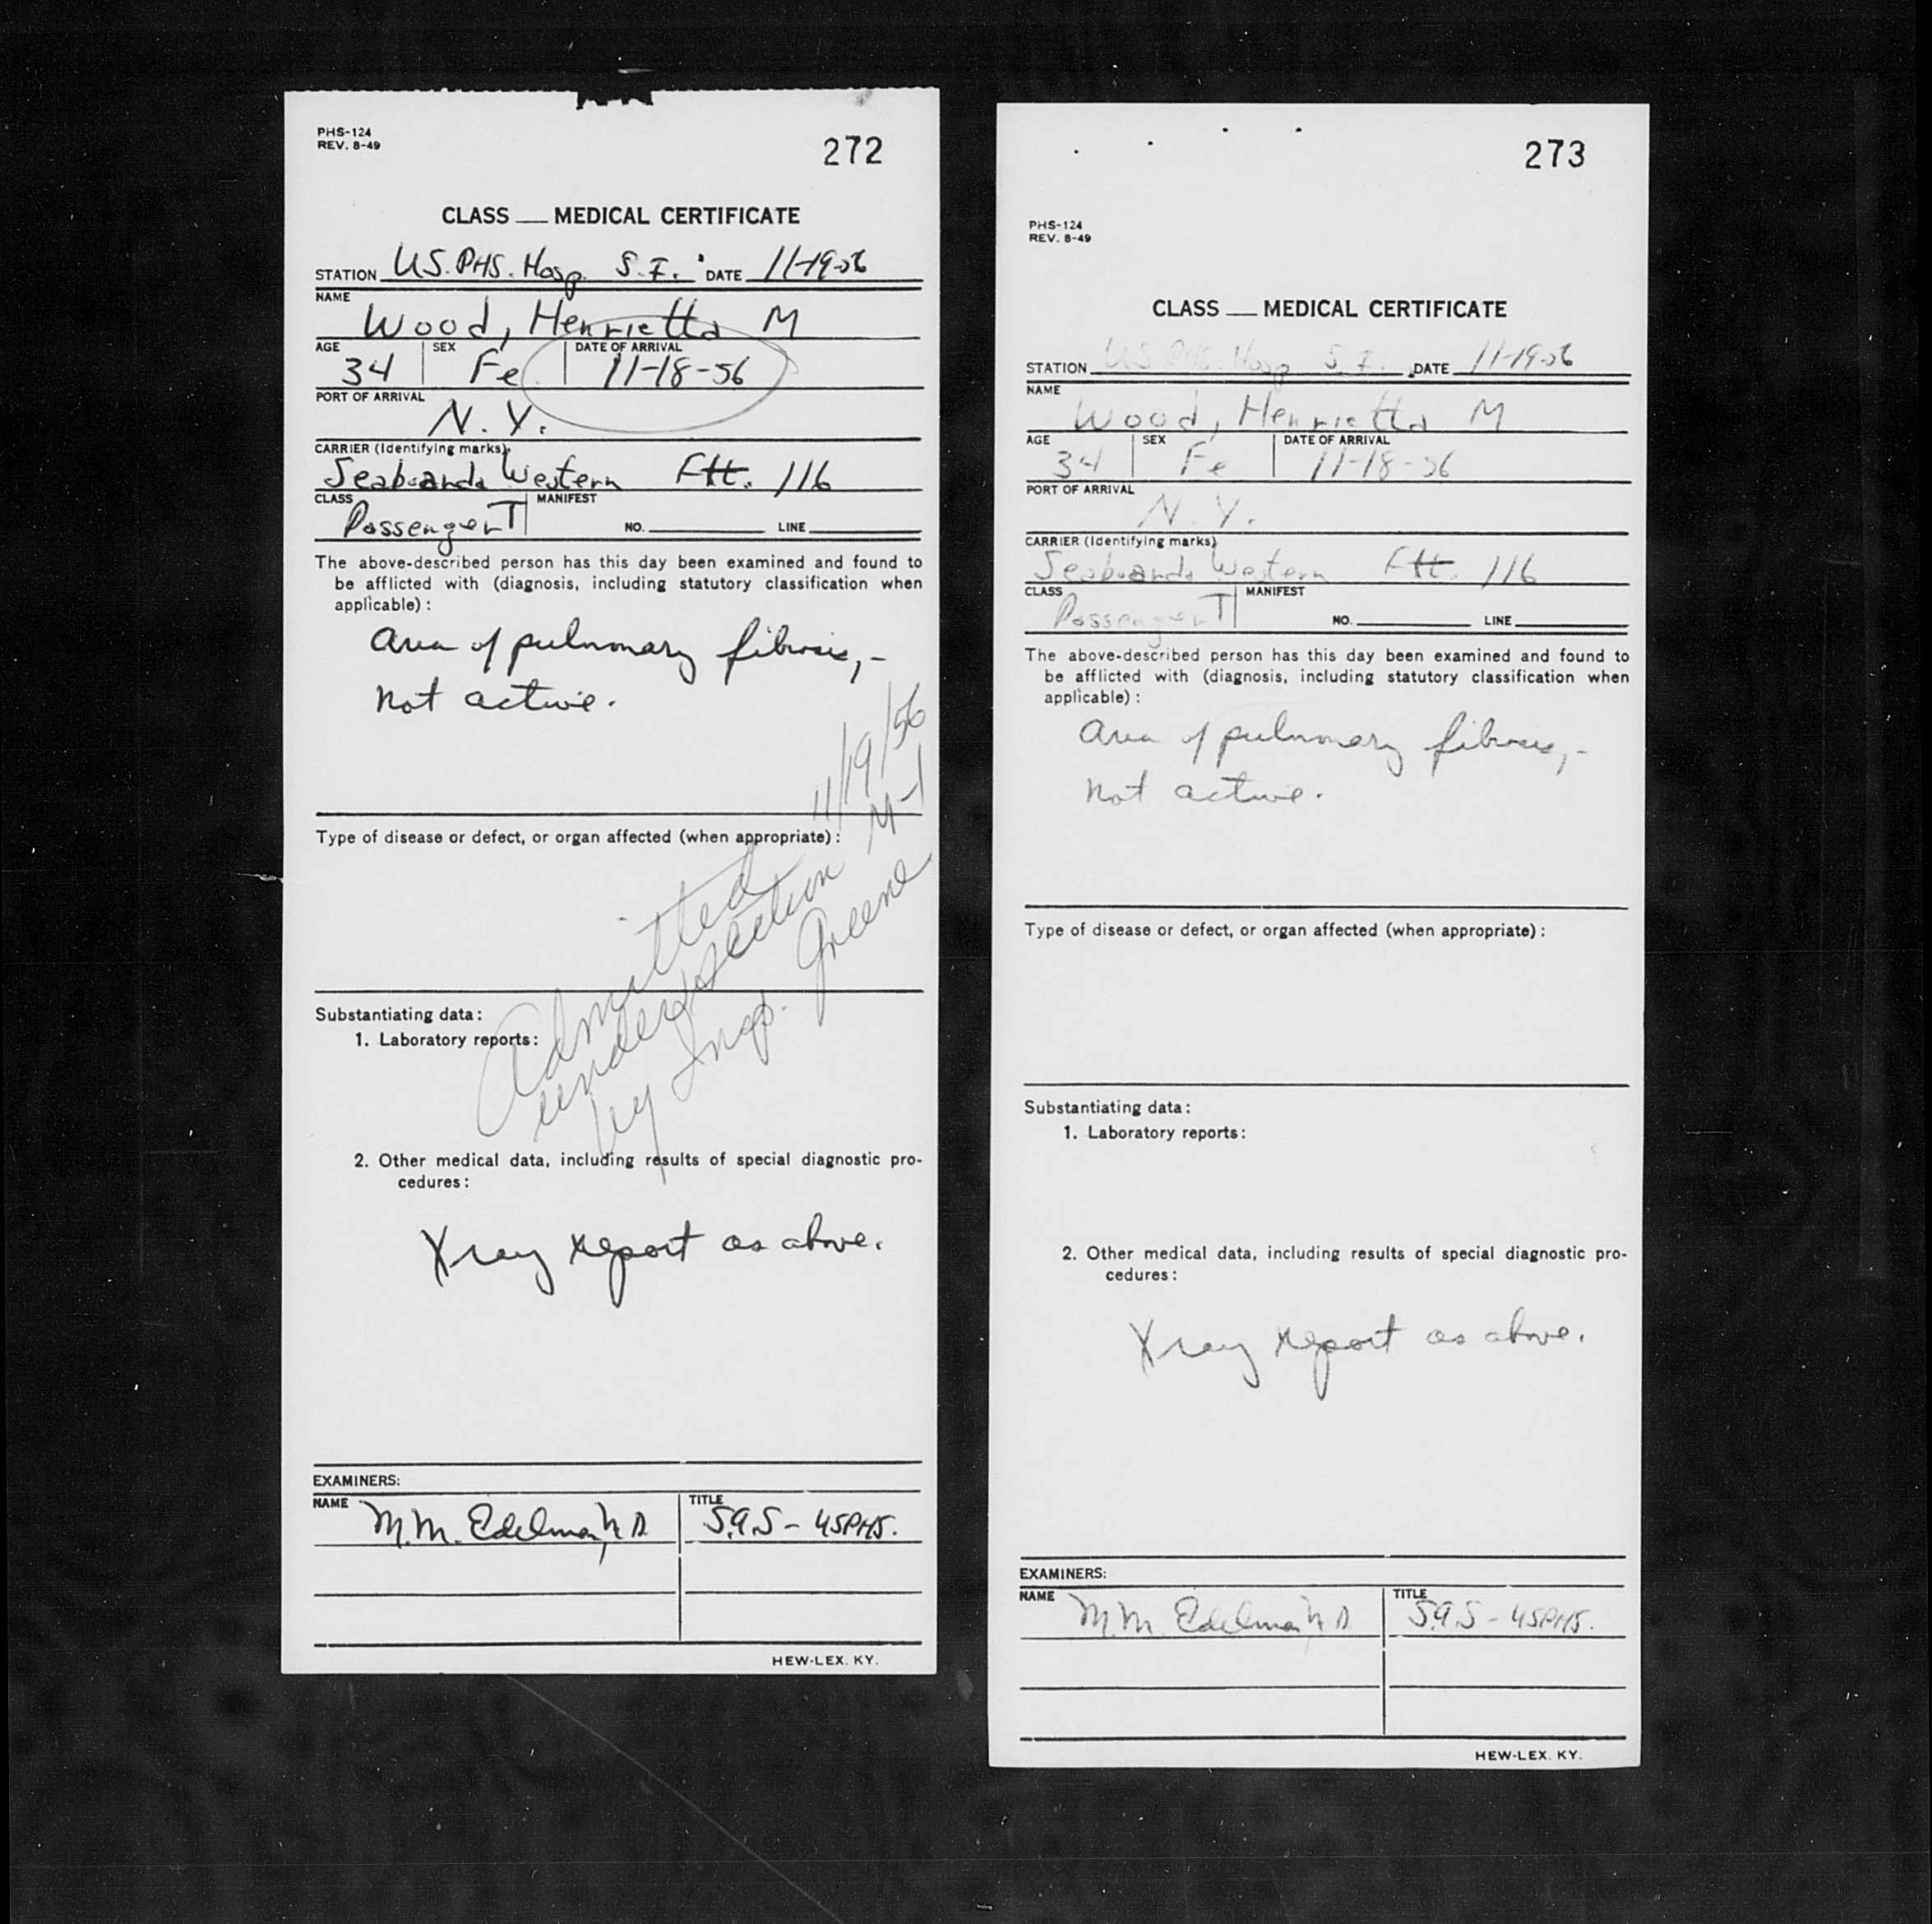 PHS-124
REV. 8-49
272
CLASS __ MEDICAL CERTIFICATE
STATION U.S. PHS. Hosp. S. I. DATE 11-19-56
NAME
Wood, Henrietta M
AGE SEX DATE OF ARRIVAL
34 Fe 11-18-56
PORT OF ARRIVAL
N.Y.
CARRIER (Identifying marks)
Seaboard & Western Flt. 116
CLASS MANIFEST
Passenger T NO. ____ LINE ____
The above-described person has this day been examined and found to
be afflicted with (diagnosis, including statutory classification when
applicable):
Area of pulmonary fibrosis, -
not active.
11/19/56
M-1
Type of disease or defect, or organ affected (when appropriate):
Admitted
under section
by Insp. Greene
Substantiating data:
1. Laboratory reports:
2. Other medical data, including results of special diagnostic pro-
cedures:
Xray report as above.
EXAMINERS:
NAME M.M. Edelman, M.D. TITLE S.A.S - USPHS.
HEW-LEX. KY.
273
PHS-124
REV. 8-49
CLASS __ MEDICAL CERTIFICATE
STATION U.S. PHS. Hosp. S. I. DATE 11-19-56
NAME
Wood, Henrietta M
AGE SEX DATE OF ARRIVAL
34 Fe 11-18-56
PORT OF ARRIVAL
N.Y.
CARRIER (Identifying marks)
Seaboard & Western Flt. 116
CLASS MANIFEST
Passenger T NO. ____ LINE ____
The above-described person has this day been examined and found to
be afflicted with (diagnosis, including statutory classification when
applicable):
Area of pulmonary fibrosis, -
not active.
Type of disease or defect, or organ affected (when appropriate):
Substantiating data:
1. Laboratory reports:
2. Other medical data, including results of special diagnostic pro-
cedures:
Xray report as above.
EXAMINERS:
NAME M.M. Edelman, M.D. TITLE S.A.S - USPHS.
HEW-LEX. KY.